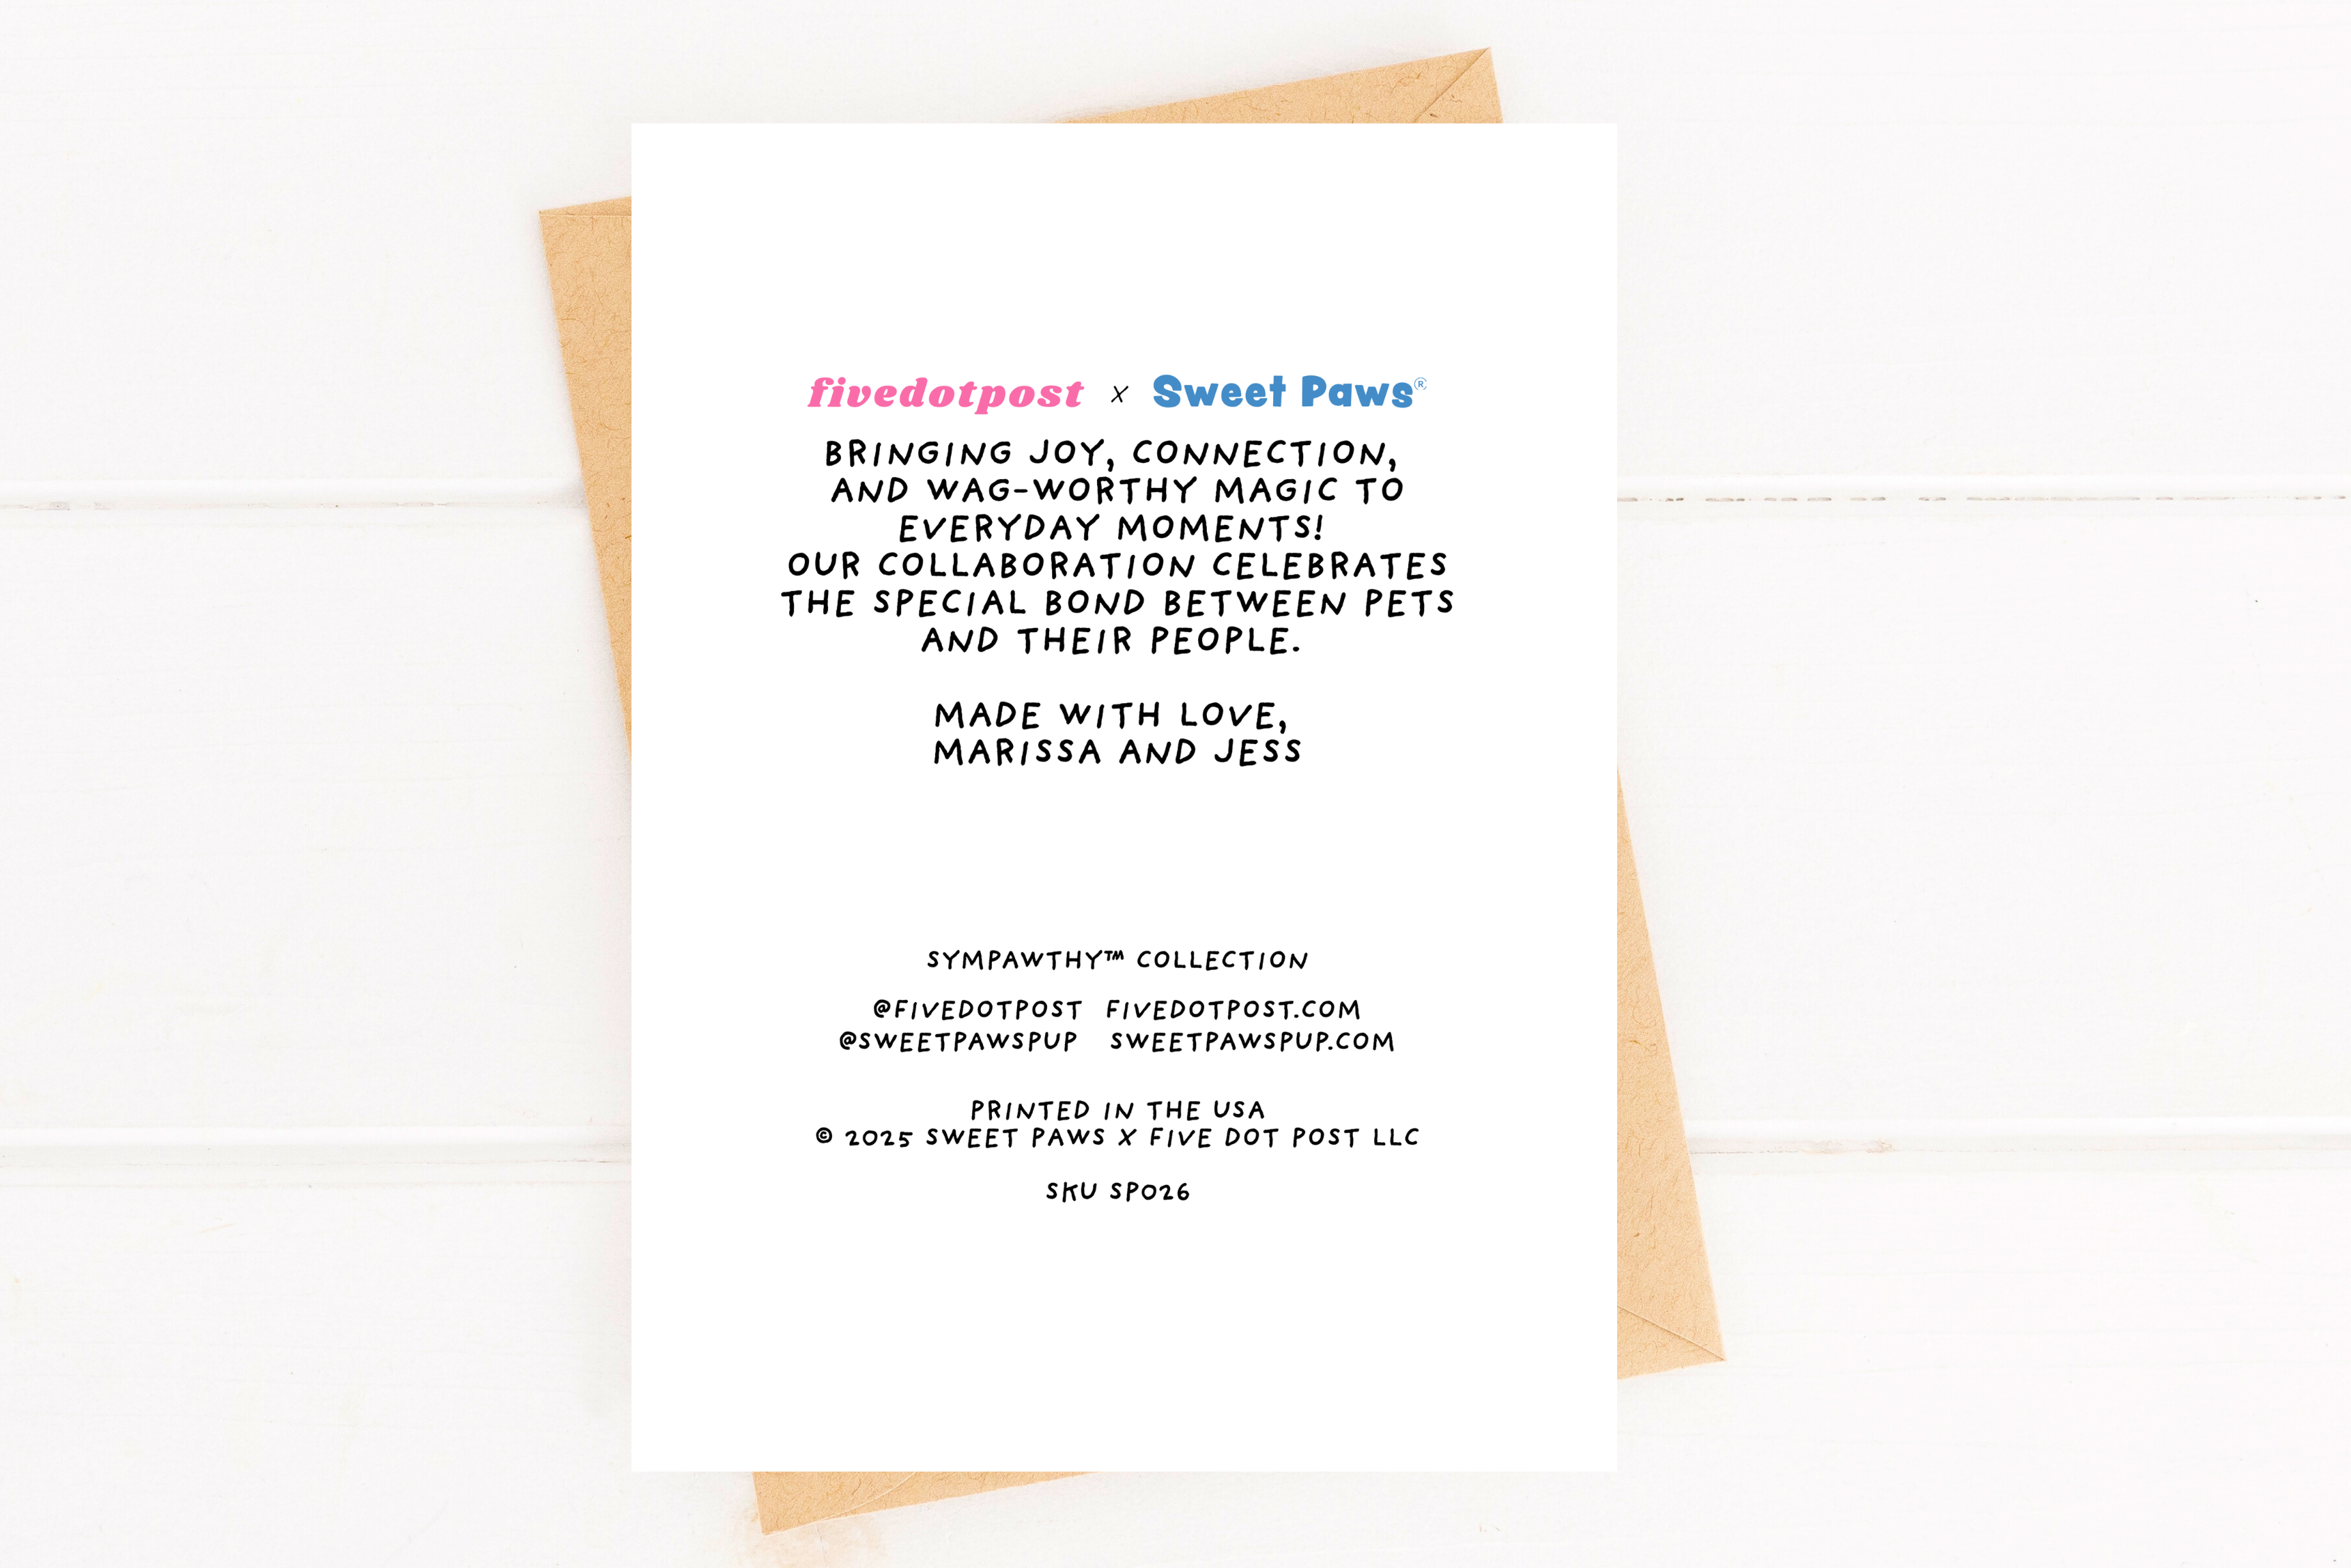 fivedotpost x Sweet Paws®
BRINGING JOY, CONNECTION,
AND WAG-WORTHY MAGIC TO
EVERYDAY MOMENTS!
OUR COLLABORATION CELEBRATES
THE SPECIAL BOND BETWEEN PETS
AND THEIR PEOPLE.
MADE WITH LOVE,
MARISSA AND JESS
SYMPAWTHY™ COLLECTION
@FIVEDOTPOST FIVEDOTPOST.COM
@SWEETPAWSPUP SWEETPAWSPUP.COM
PRINTED IN THE USA
© 2025 SWEET PAWS X FIVE DOT POST LLC
SKU SP026